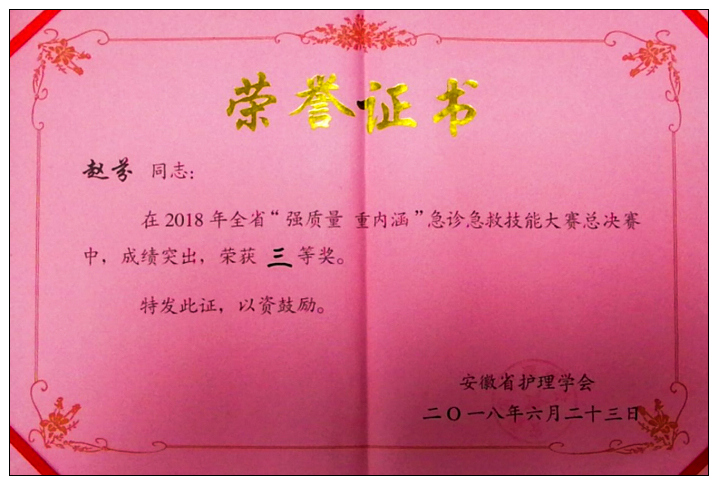 荣誉证书
赵芬 同志：
在2018年全省“强质量 重内涵”急诊急救技能大赛总决赛
中，成绩突出，荣获 三 等奖。
特发此证，以资鼓励。
安徽省护理学会
二〇一八年六月二十三日